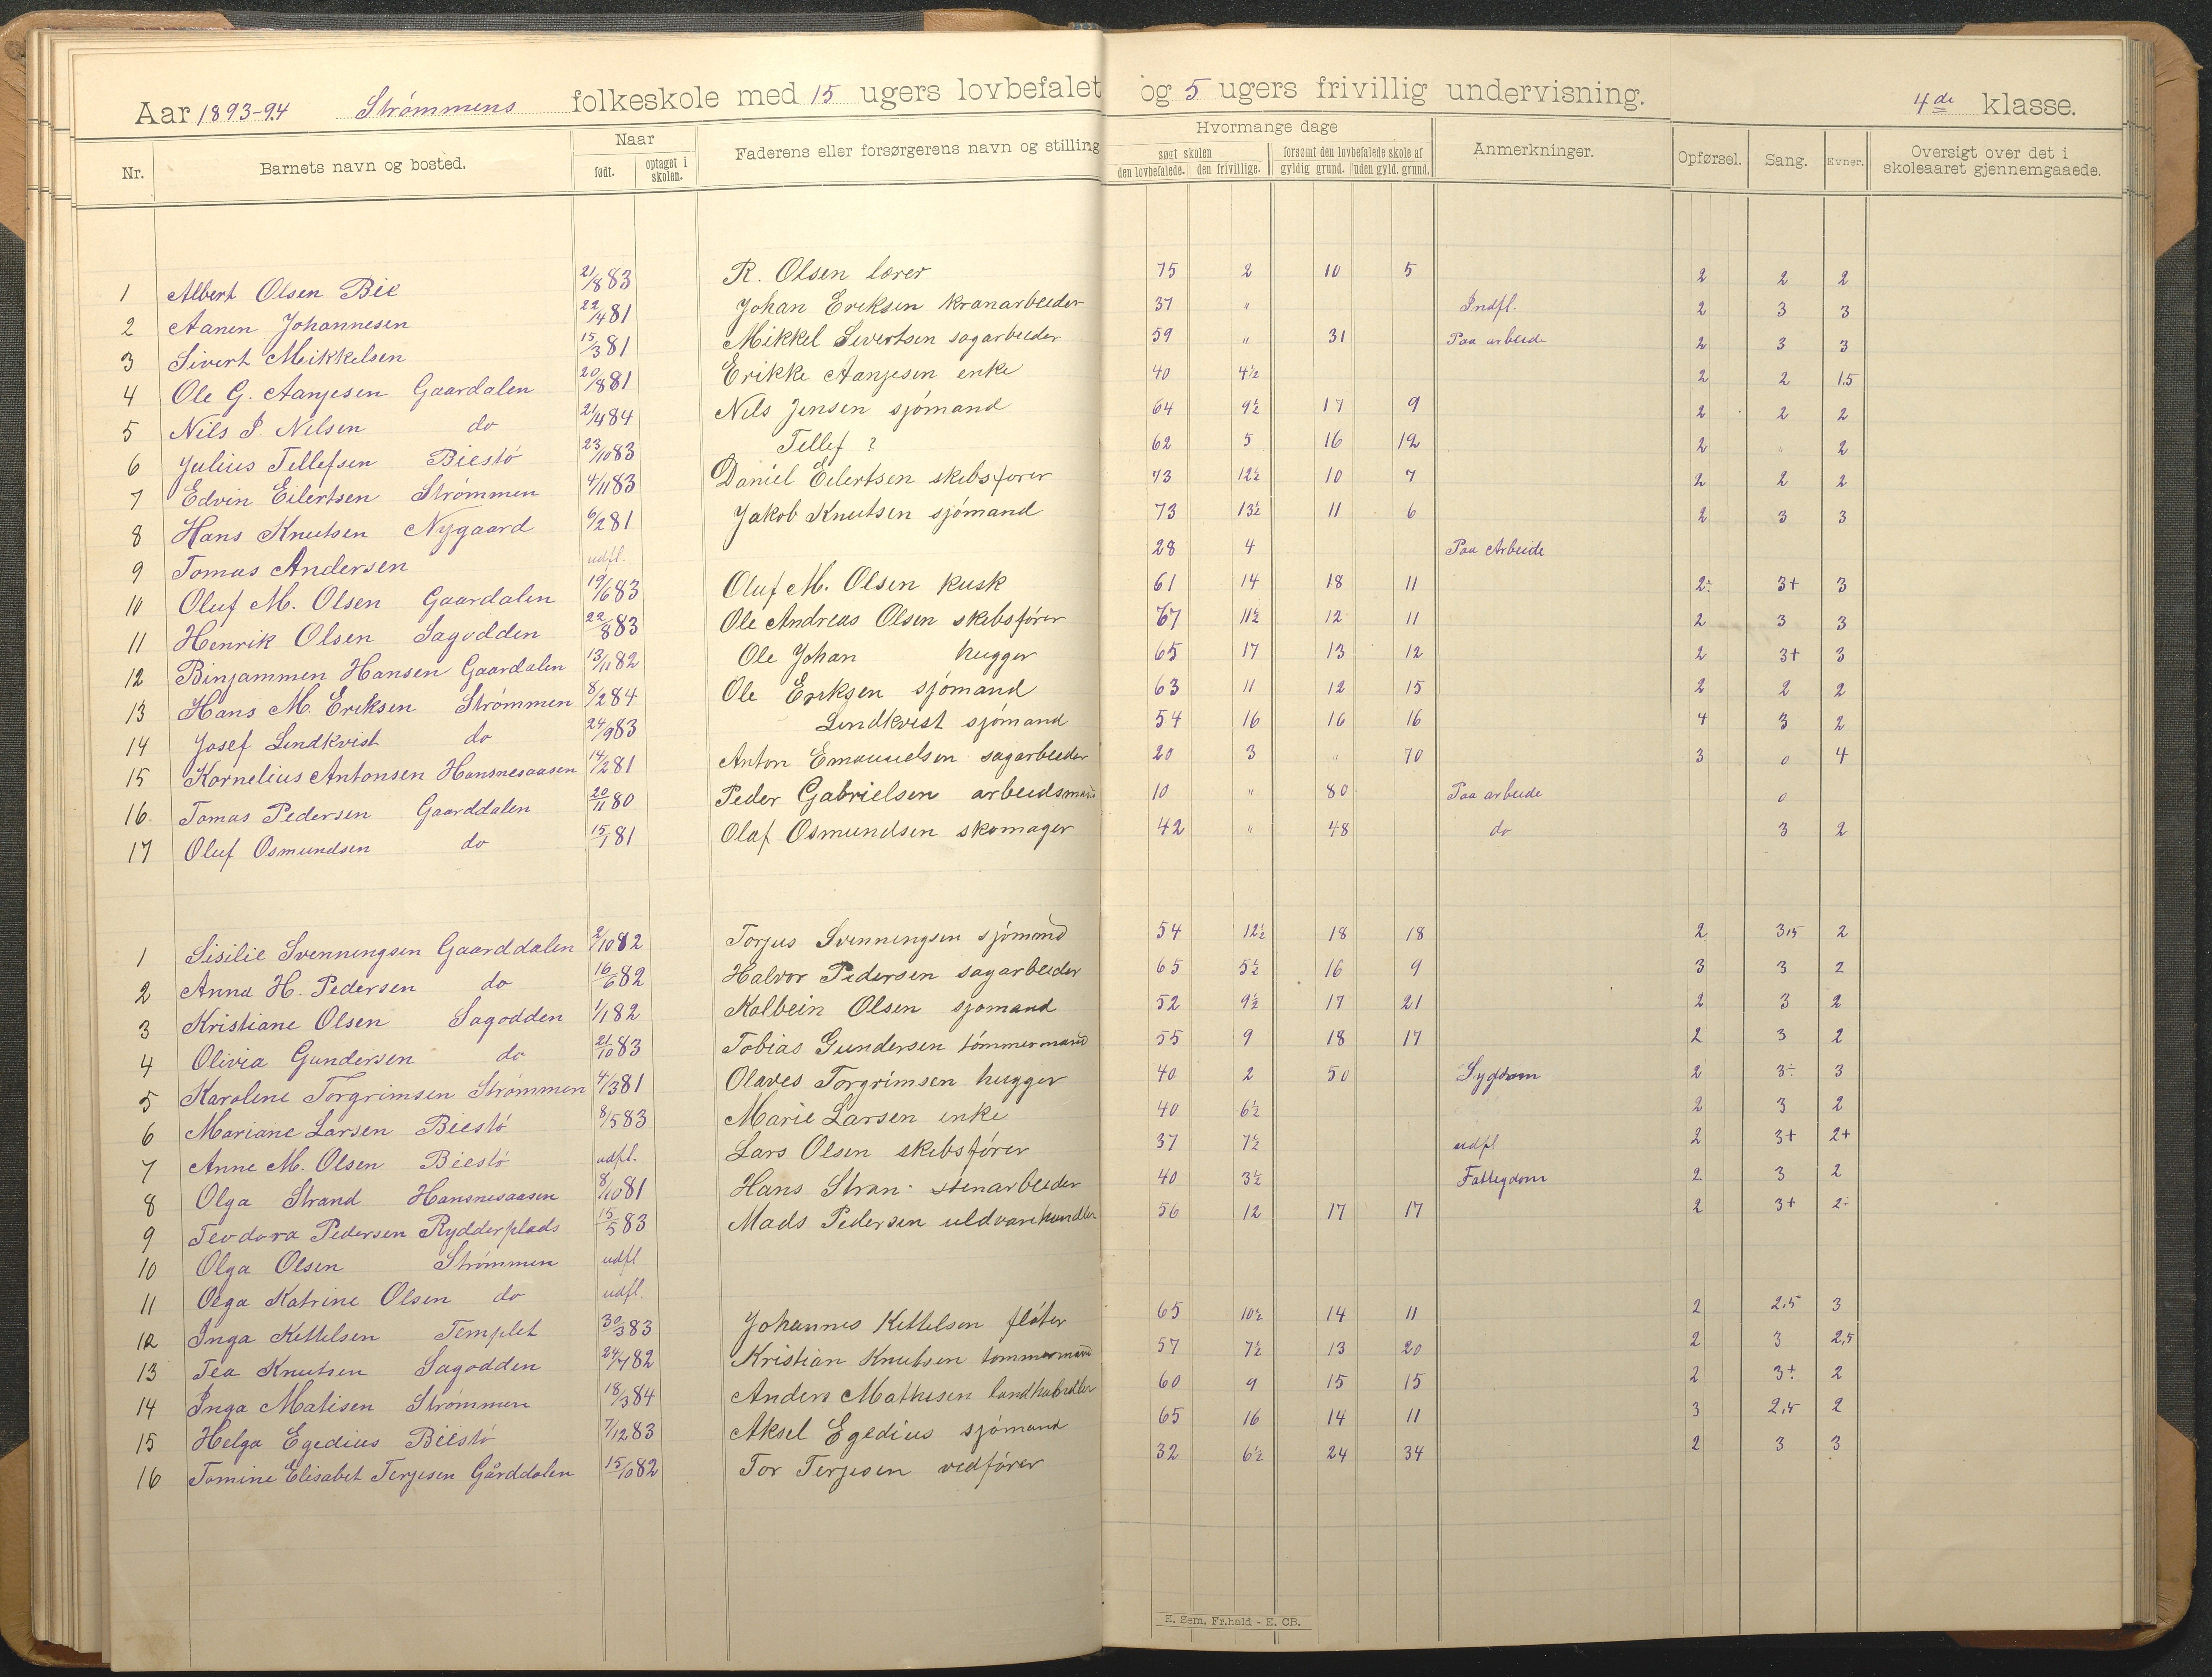 Aar 1893-94 Strømmens folkeskole med 15 ugers lovbefalet og 5 ugers frivillig undervisning. 4de klasse.
Nr. Barnets navn og bosted. Naar født. optaget i skolen. Faderens eller forsørgerens navn og stilling Hvormange dage søgt skolen den lovbefalede. den frivillige. forsømt den lovbefalede skole af gyldig grund. uden gyld. grund. Anmerkninger. Opførsel. Sang. Evner. Oversigt over det i skoleaaret gjennemgaaede.
1 Albert Olsen Bie 21/8 83 R. Olsen lærer 75 2 10 5 2 2 2
2 Aanen Johannesen 22/4 81 Johan Eriksen kranarbeider 37 " Indfl. 2 3 3
3 Sivert Mikkelsen 15/3 81 Mikkel Sivertsen sagarbeider 59 " 31 Paa arbeide 2 3 3
4 Ole G. Aanjesen Gaardalen 20/8 81 Erikke Aanjesen enke 40 4½ 2 2 1.5
5 Nils J. Nelsen do 21/4 84 Nils Jensen sjömand 64 9½ 17 9 2 2 2
6 Julius Tellefsen Biestö 23/10 83 Tellef ? 62 5 16 12 2 " 2
7 Edvin Eilertsen Strömmen 4/11 83 Daniel Eilertsen skibsfører 73 12½ 10 7 2 2 2
8 Hans Knutsen Nygaard 6/2 81 Jakob Knutsen sjömand 73 13½ 11 6 2 3 3
9 Tomas Andersen udfl. 28 4 Paa Arbeide
10 Oluf M. Olsen Gaardalen 19/6 83 Oluf M. Olsen kusk 61 14 18 11 2÷ 3+ 3
11 Henrik Olsen Sagodden 22/8 83 Ole Andreas Olsen skibsförer 67 11½ 12 11 2 3 3
12 Binjammen Hansen Gaardalen 13/11 82 Ole Johan hugger 65 17 13 12 2 3+ 3
13 Hans M. Eriksen Strømmen 8/2 84 Ole Eriksen sjömand 63 11 12 15 2 2 2
14 Josef Lindkvist do 24/9 83 Lindkvist sjömand 54 16 16 16 4 3 2
15 Kornelius Antonsen Hansnesaasen 14/2 81 Anton Emanuelsen sagarbeider 20 3 " 70 3 0 4
16. Tomas Pedersen Gaarddalen 20/11 80 Peder Gabrielsen arbeidsmand 10 " 80 Paa arbeide 0
17 Oluf Osmundsen do 15/1 81 Olaf Osmundsen skomager 42 " 48 do 3 2
1 Sisilie Svenningsen Gaarddalen 2/10 82 Torjus Svenningsen sjömand 54 12½ 18 18 2 3,5 2
2 Anna H. Pedersen do 16/6 82 Halvor Pedersen sagarbeider 65 5½ 16 9 3 3 2
3 Kristiane Olsen Sagodden 1/1 82 Kolbein Olsen sjomand 52 9½ 17 21 2 3 2
4 Olivia Gundersen do 21/10 83 Tobias Gundersen tömmermand 55 9 18 17 2 3 2
5 Karoline Torgrimsen Strömmen 4/3 81 Olaves Torgrimsen hugger 40 2 50 Sygdom 2 3÷ 3
6 Mariane Larsen Biestö 8/5 83 Marie Larsen enke 40 6½ 2 3 2
7 Anne M. Olsen Biestö udfl. Lars Olsen skibsförer 37 7½ udfl 2 3+ 2+
8 Olga Strand Hansnesaasen 8/10 81 Hans Stran stenarbeider 40 3½ Fattigdom 2 3 2
9 Teodora Pedersen Rydderplads 15/5 83 Mads Pedersen uldvarehandler 56 12 17 17 2 3+ 2÷
10 Olga Olsen Strømmen udfl
11 Olga Katrine Olsen do udfl.
12 Inga Kettelsen Templet 30/3 83 Johannes Kettelsen flöter 65 10½ 14 11 2 2,5 3
13 Tea Knutsen Sagodden 24/7 82 Kristian Knutsen tommermand 57 7½ 13 20 2 3 2,5
14 Inga Matisen Strömmen 18/3 84 Anders Mathisen landhandler 60 9 15 15 2 3÷ 2
15 Helga Egedius Biestö 7/12 83 Aksel Egedius sjömand 65 16 14 11 3 2,5 2
16 Tomine Elisabet Terjesen Gårddalen 15/10 82 Tor Terjesen vedförer 32 6½ 24 34 2 3 3
E. Sem, Fr.hald - E. CB.